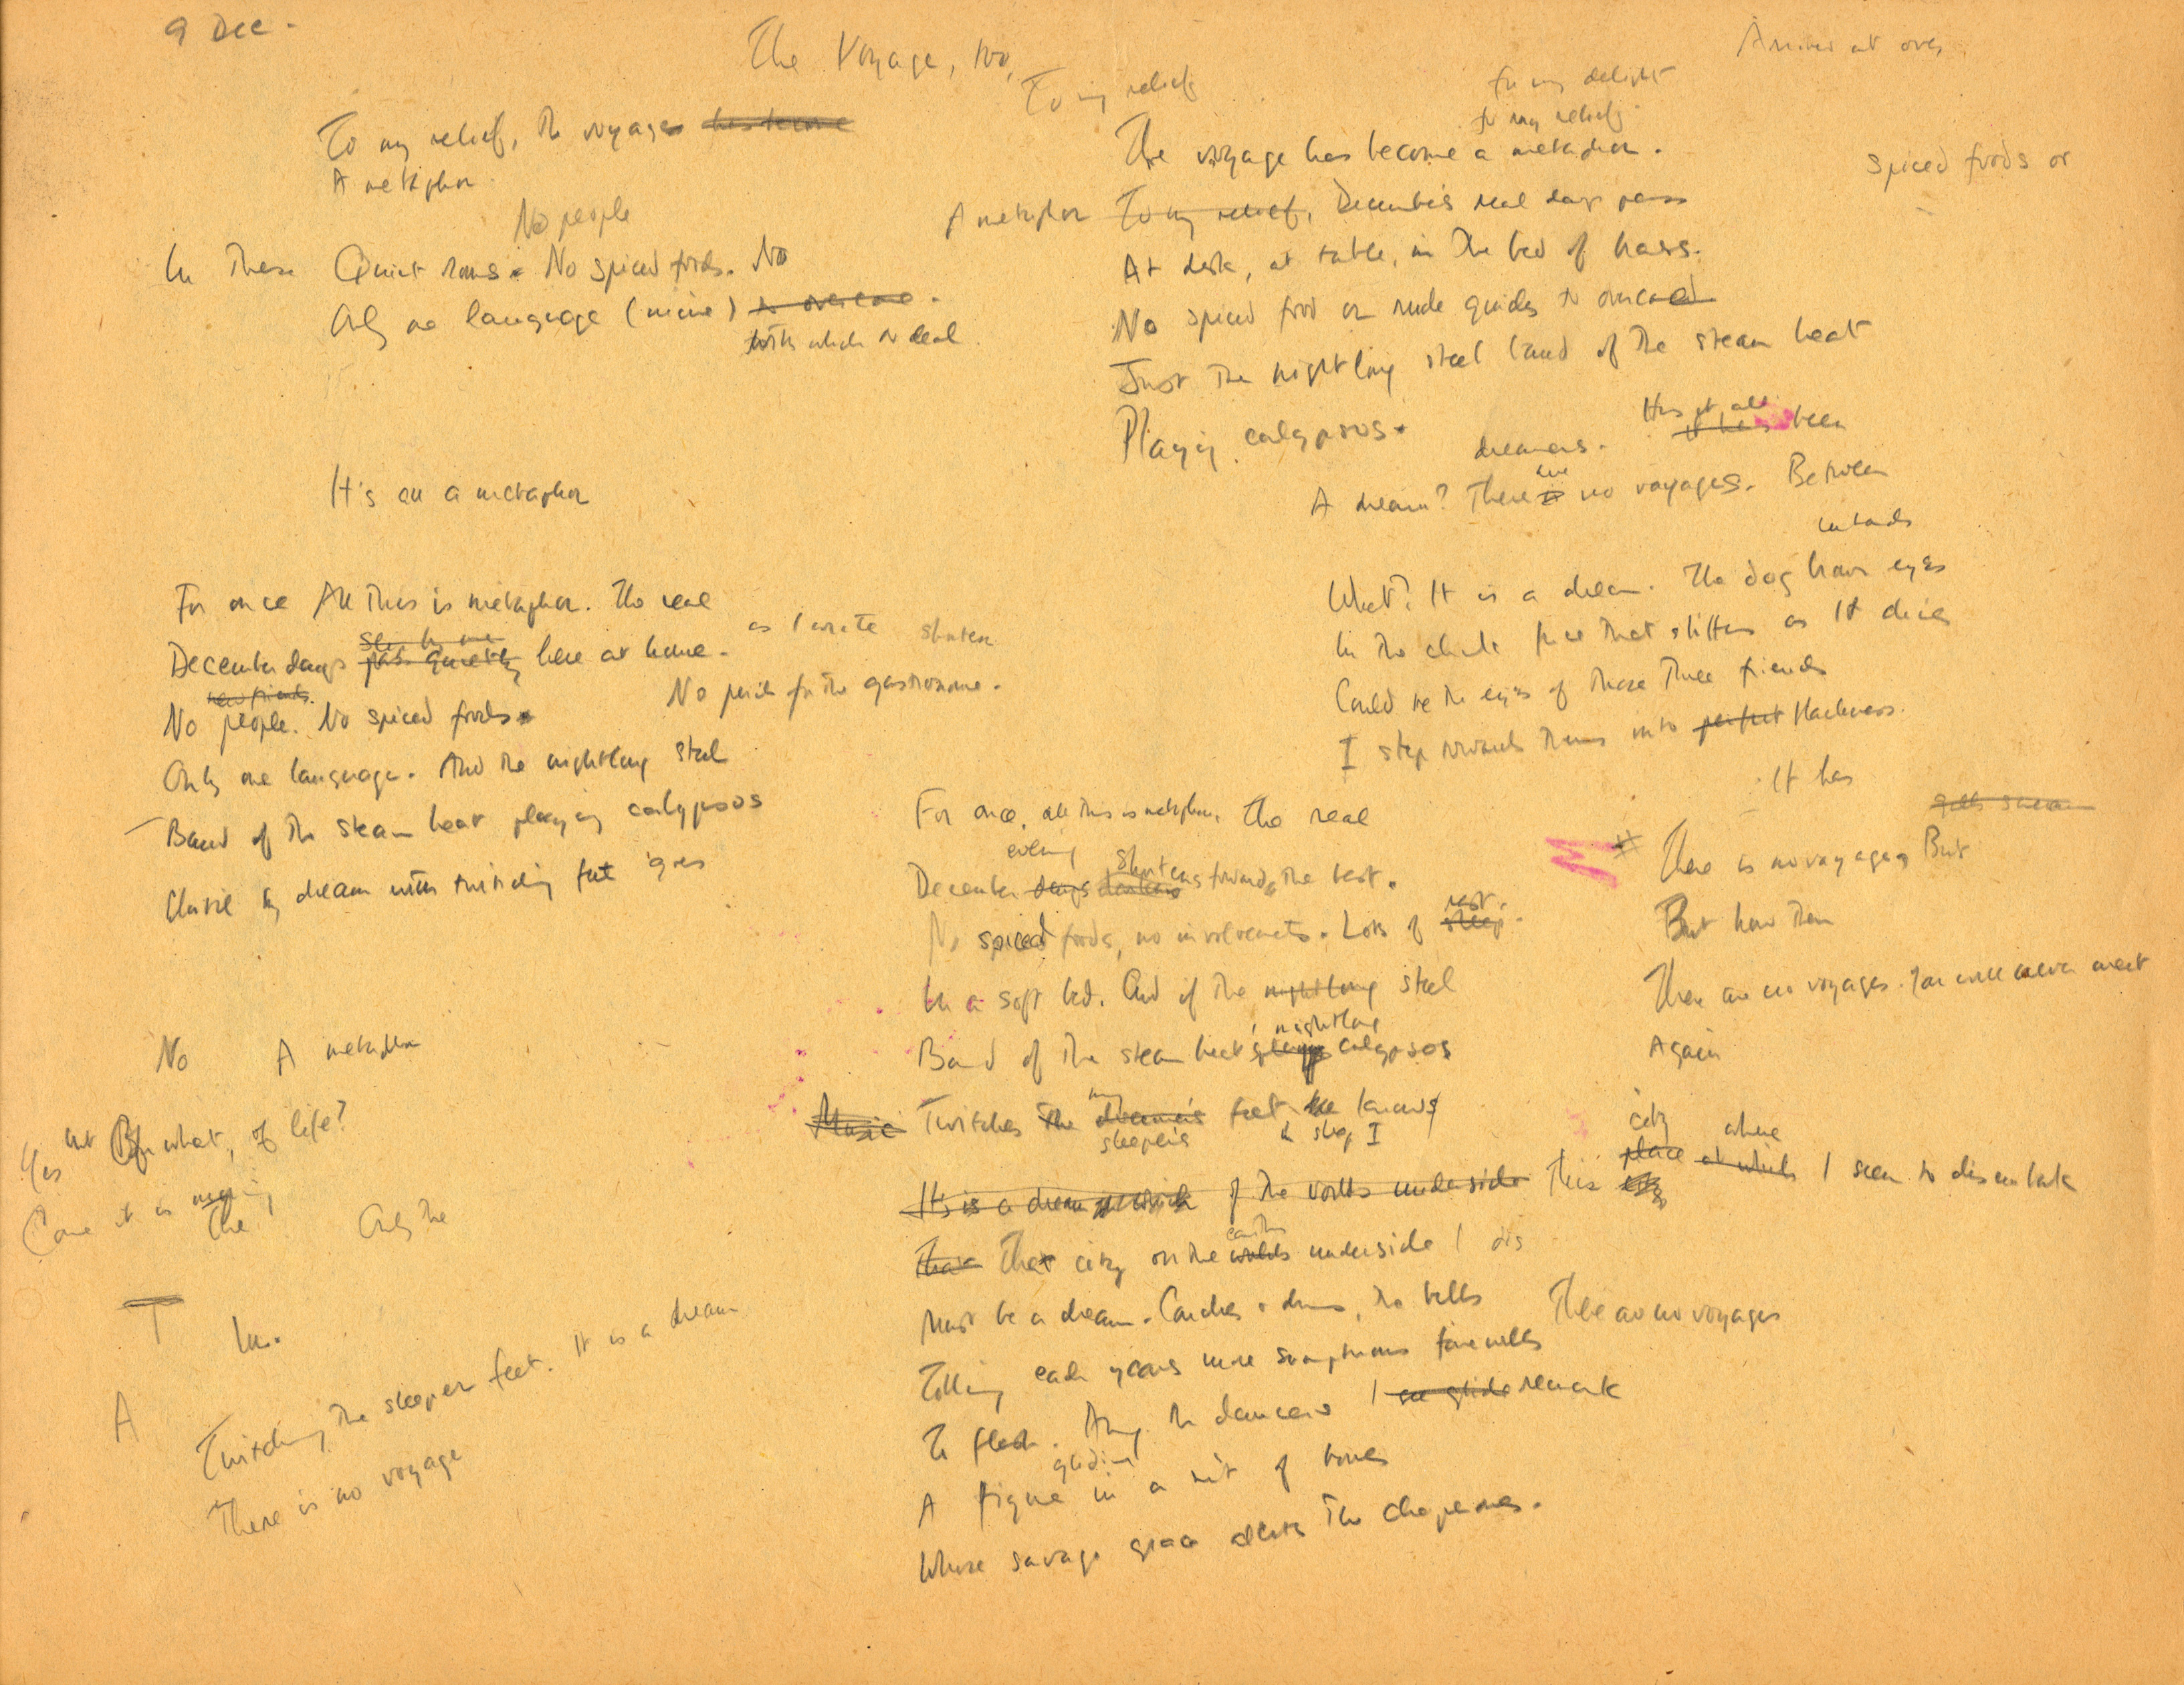 9 Dec.
The Voyage, too,
To my relief
for my delight
to my relief
Arrives at over
To my relief, the voyages has become
A metaphor
No people
In These Quiet rooms. No spiced foods. No
Only one language (mine) to overcome.
with which to deal
The voyage has become a metaphor.
spiced foods or
A metaphor To my relief, December's real days pass
At desk, at table, in the bed of brass.
No spiced food or rude guides to overcome
Just the nightlong steel band of the steam heat
Playing calypsos.
dreamers. Has it all
it has been
It's all a metaphor
A dream? There is are no voyages. Between
For once All This is metaphor. The real
December days pass quietly here at home. as I write shorten
new friends.
No people. No spiced foods. No perils for the gastronome.
Only one language. And the nightlong steel
Band of the steam heat playing calypsos
Whose dream with twitching feet goes
What? It is a dream. The dog brown eyes
In the face that stiffens as it dies
Could be the eyes of those three friends
I step towards them into perfect blackness.
It has
For once, all this is metaphor. The real
evening
December days shortens towards the best.
No spiced foods, no involvements. Lots of sleep rest.
In a soft bed. And if the nightlong steel
Band of the steam heat's playing nightlong calypsos
Music Twitches the dreamer's my sleeper's feet he knows
& sleep I
It's is a dream of the world's underside This place city at which where I seem to disembark
That That city on the world's earth's underside I dis
Must be a dream. Candles & drums, the bells
Tolling each year's more sumptuous farewells
To flesh. Among the dancers I see glide remark
A figure gliding in a suit of bones
Whose savage grace alerts the chaperones.
There is no voyage, But
But how then
There are no voyages. You will never meet
Again
There are no voyages
No A metaphor
Yes but Of what, of life?
Come it is
The Only the
T In.
A
Twitching the sleeper feet. It is a dream
There is no voyage